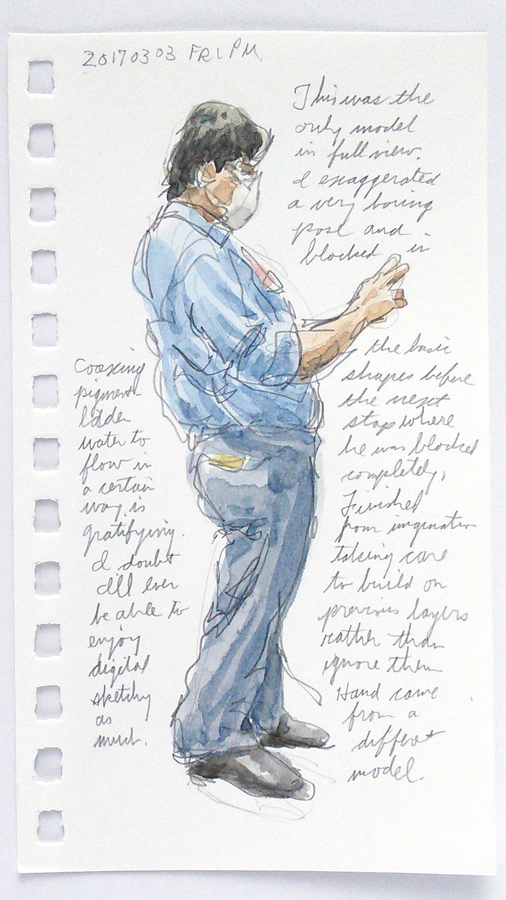 20170303 FRI PM.
This was the
only model
in full view.
I exaggerated
a very boring
pose and
blocked in
the basic
shapes before
the next
stop where
he was blocked
completely.
Finished
from imagination
taking care
to build on
previous layers
rather than
ignore them
Hand came
from a
different
model.
Coaxing
pigment
laden
water to
flow in
a certain
way is
gratifying.
I doubt
I'll ever
be able to
enjoy
digital
sketchg
as
much.